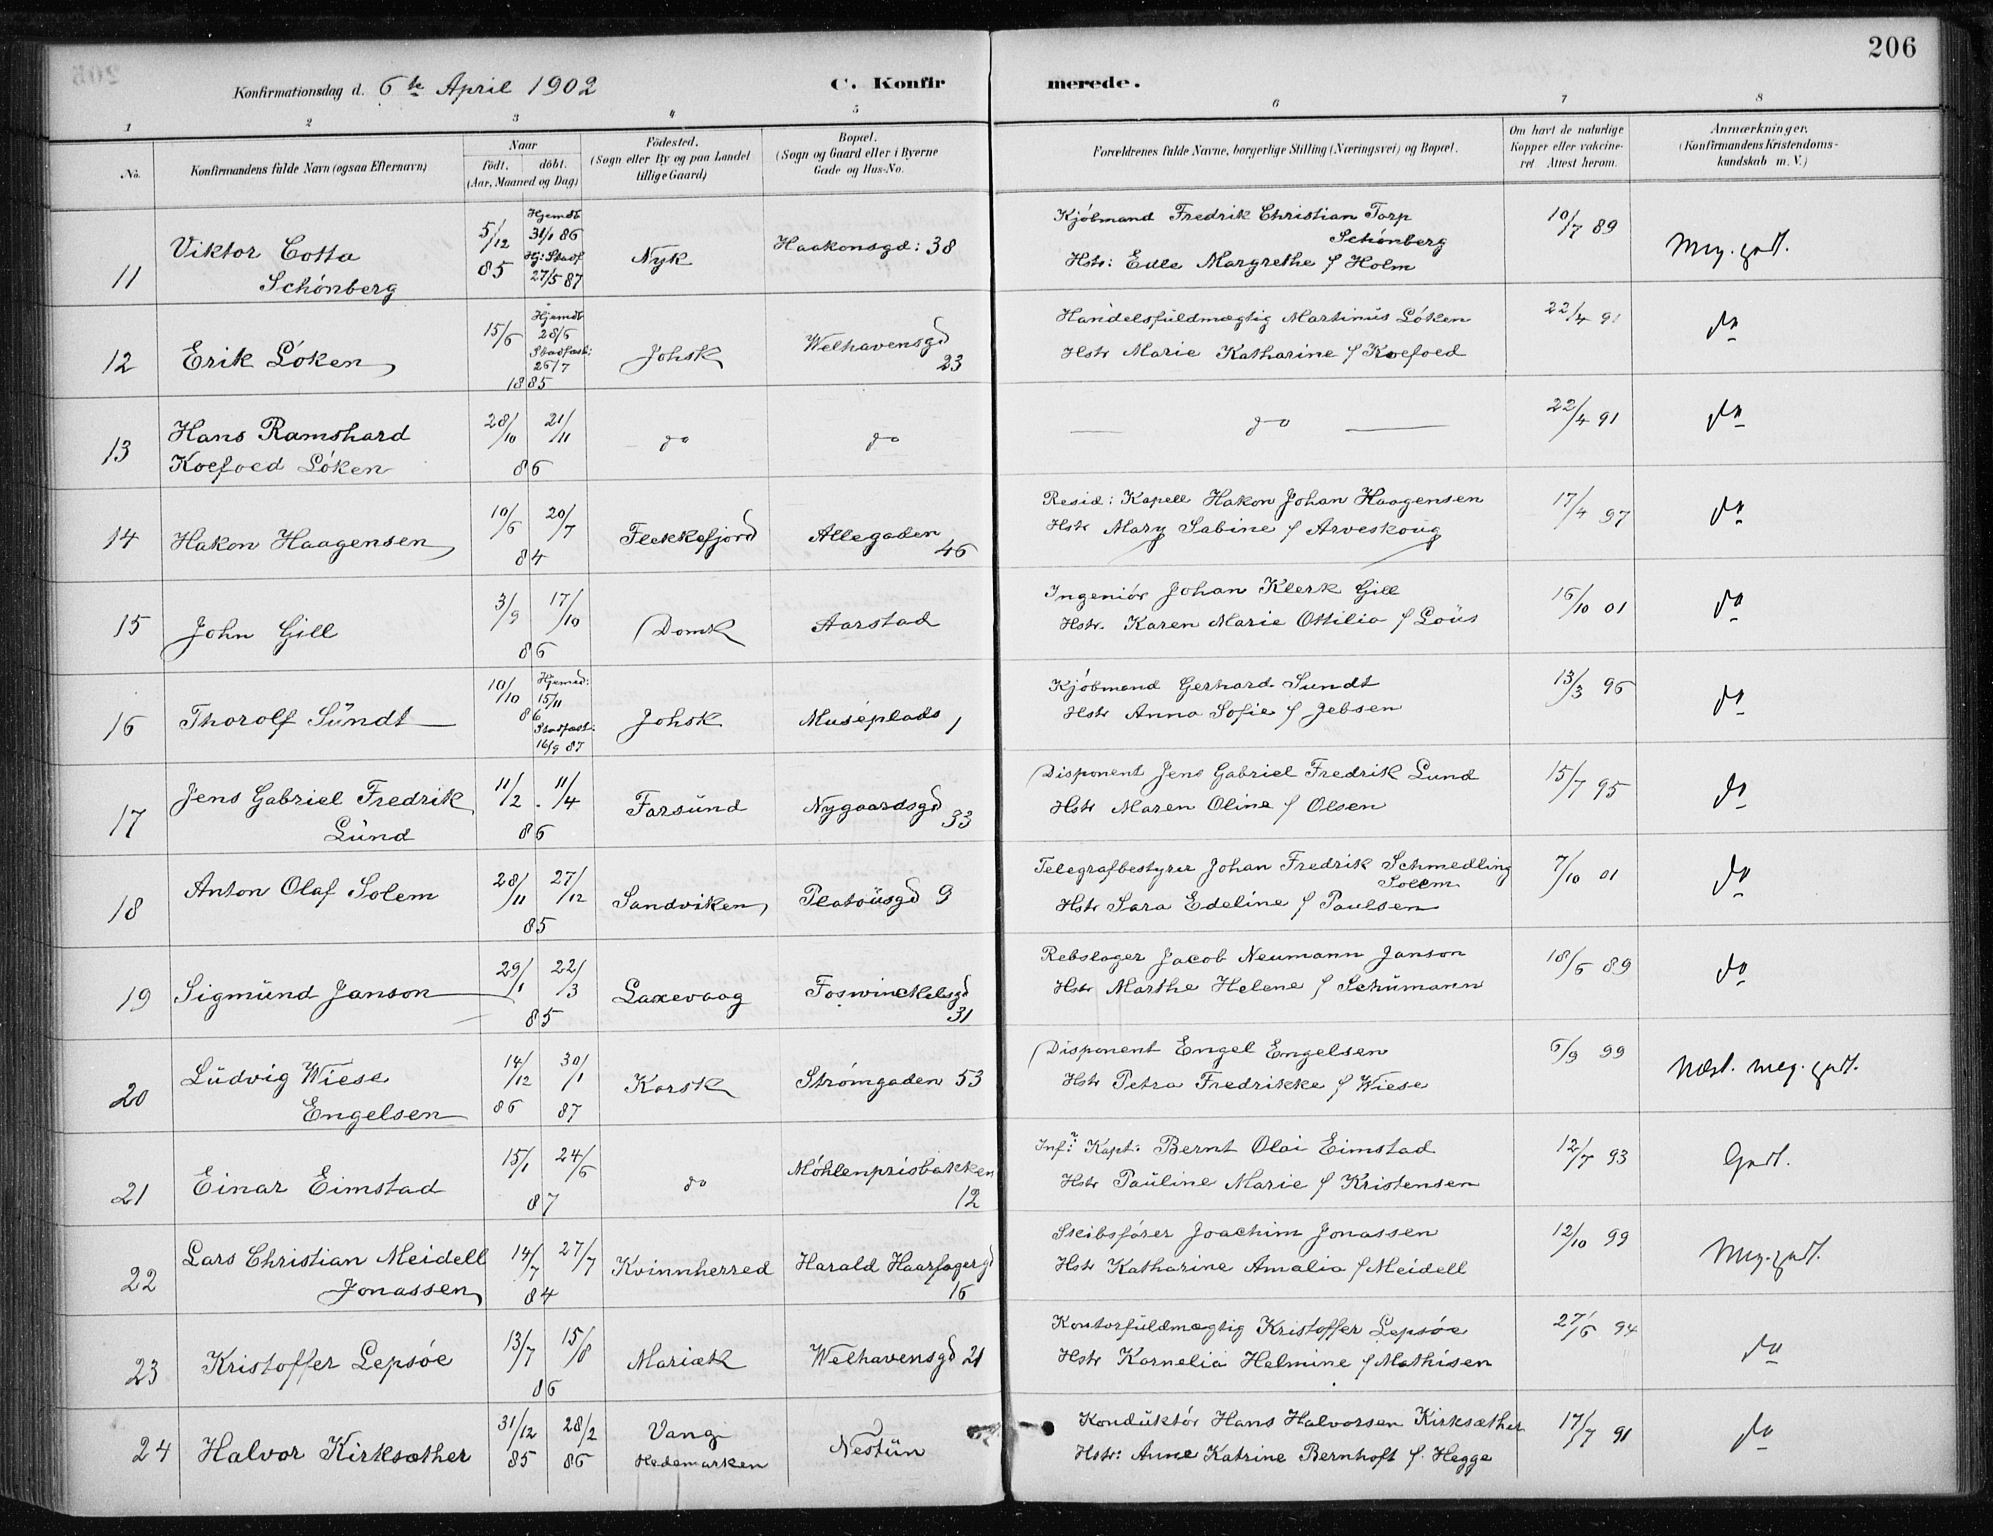 206
Konfirmationsdag d. 6te April 1902
C. Konfirmerede.
1 2 3 4 5 6 7 8
No.
Konfirmandens fulde Navn (ogsaa Efternavn)
Naar
födt. döbt.
(Aar, Maaned og Dag)
Födested.
(Sogn eller By og paa Landet
tillige Gaard)
Bopæl.
(Sogn og Gaard eller i Byerne
Gade og Hus-No.
Forældrenes fulde Navne, borgerlige Stilling (Næringsvei) og Bopæl.
Om havt de naturlige
Kopper eller vakcine-
ret Attest herom.
Anmærkninger.
(Konfirmandens Kristendoms-
kundskab m. V.)
11 Viktor Cotta
Schönberg
5/12 85
Hjemdt
31/1 86
Hj: Stadf
27/5 87
Nyk
Haakonsgd: 38
Kjöbmand Fredrik Christian Torp
Schönberg
Hstr: Edle Margrethe f Holm
10/7 89
Meg. godt.
12 Erik Löken
15/6
Hjemdt
28/6
Stadfæst:
26/7
1885
Johsk
Welhavensgd
23
Handelsfuldmægtig Martinus Löken
Hstr Marie Katharine f Koefoed
22/4 91
do
13 Hans Ramshard
Koefoed Löken
28/10 21/11
86
do
do
do
22/4 91
do
14 Hakon Haagensen
10/6 20/7
84
Flekkefjord
Allegaden
46
Resid: Kapell Hakon Johan Haagensen
Hstr Mary Sabine f Arveskoug
17/4 97
do
15 John Gill
3/9 17/10
86
Domk
Aarstad
Ingeniör Johan Klerk Gill
Hstr. Karen Marie Ottilia f Loüs
16/10 01
do
16 Thorolf Sündt
10/10
Hjemd:
15/11
86
Stadfæst:
16/9 87
Johsk
Museplads 1
Kjöbmand Gerhard Sundt
Hstr Anna Sofie f Jebsen
13/3 96
do
17 Jens Gabriel Fredrik
Lünd
11/2 11/4
86
Farsünd
Nygaardsgd
33
Disponent Jens Gabriel Fredrik Lund
Hstr Maren Oline f Olsen
15/7 95
do
18 Anton Olaf Solem
28/11 27/12
85
Sandviken
Platoüsgd 9
Telegrafbestyrer Johan Fredrik Schmedling
Solem
Hstr Sara Edeline f Paulsen
7/10 01
do
19 Sigmünd Janson
29/1 22/3
85
Laxevaag
Foswinckelsgd
31
Rebslager Jacob Neumann Janson
Hstr Marthe Helene f Schümann
18/6 89
do
20 Lüdvig Wiese
Engelsen
14/12 30/1
86 87
Korsk
Strömgaden 53
Disponent Engel Engelsen
Hstr Petra Fredrikke f Wiese
6/9 99
Næst. meg. godt.
21 Einar Eimstad
15/1 24/6
87
do
Möhlenprisbakken
12
Inf: Kapt. Bernt Olai Eimstad
Hstr Pauline Marie f Kristensen
12/7 93
Godt.
22 Lars Christian Meidell
Jonassen
14/7 27/7
84
Kvinnherred
Harald Haarfagergd
16
Skibsförer Joachim Jonassen
Hstr Katharine Amalia f Meidell
12/10 99
Meg. godt.
23 Kristoffer Lepsöe
13/7 15/8
86
Mariæk
Welhavensgd 21
Kontorfuldmægtig Kristoffer Lepsöe
Hstr Kornelia Helmine f Mathisen
27/6 94
do
24 Halvor Kirksæther
31/12 28/2
85 86
Vang
Hedemarken
Nestün
Konduktör Hans Halvorsen Kirksæther
Hstr: Anne Katrine Bernhoft f. Hegge
17/7 91
do